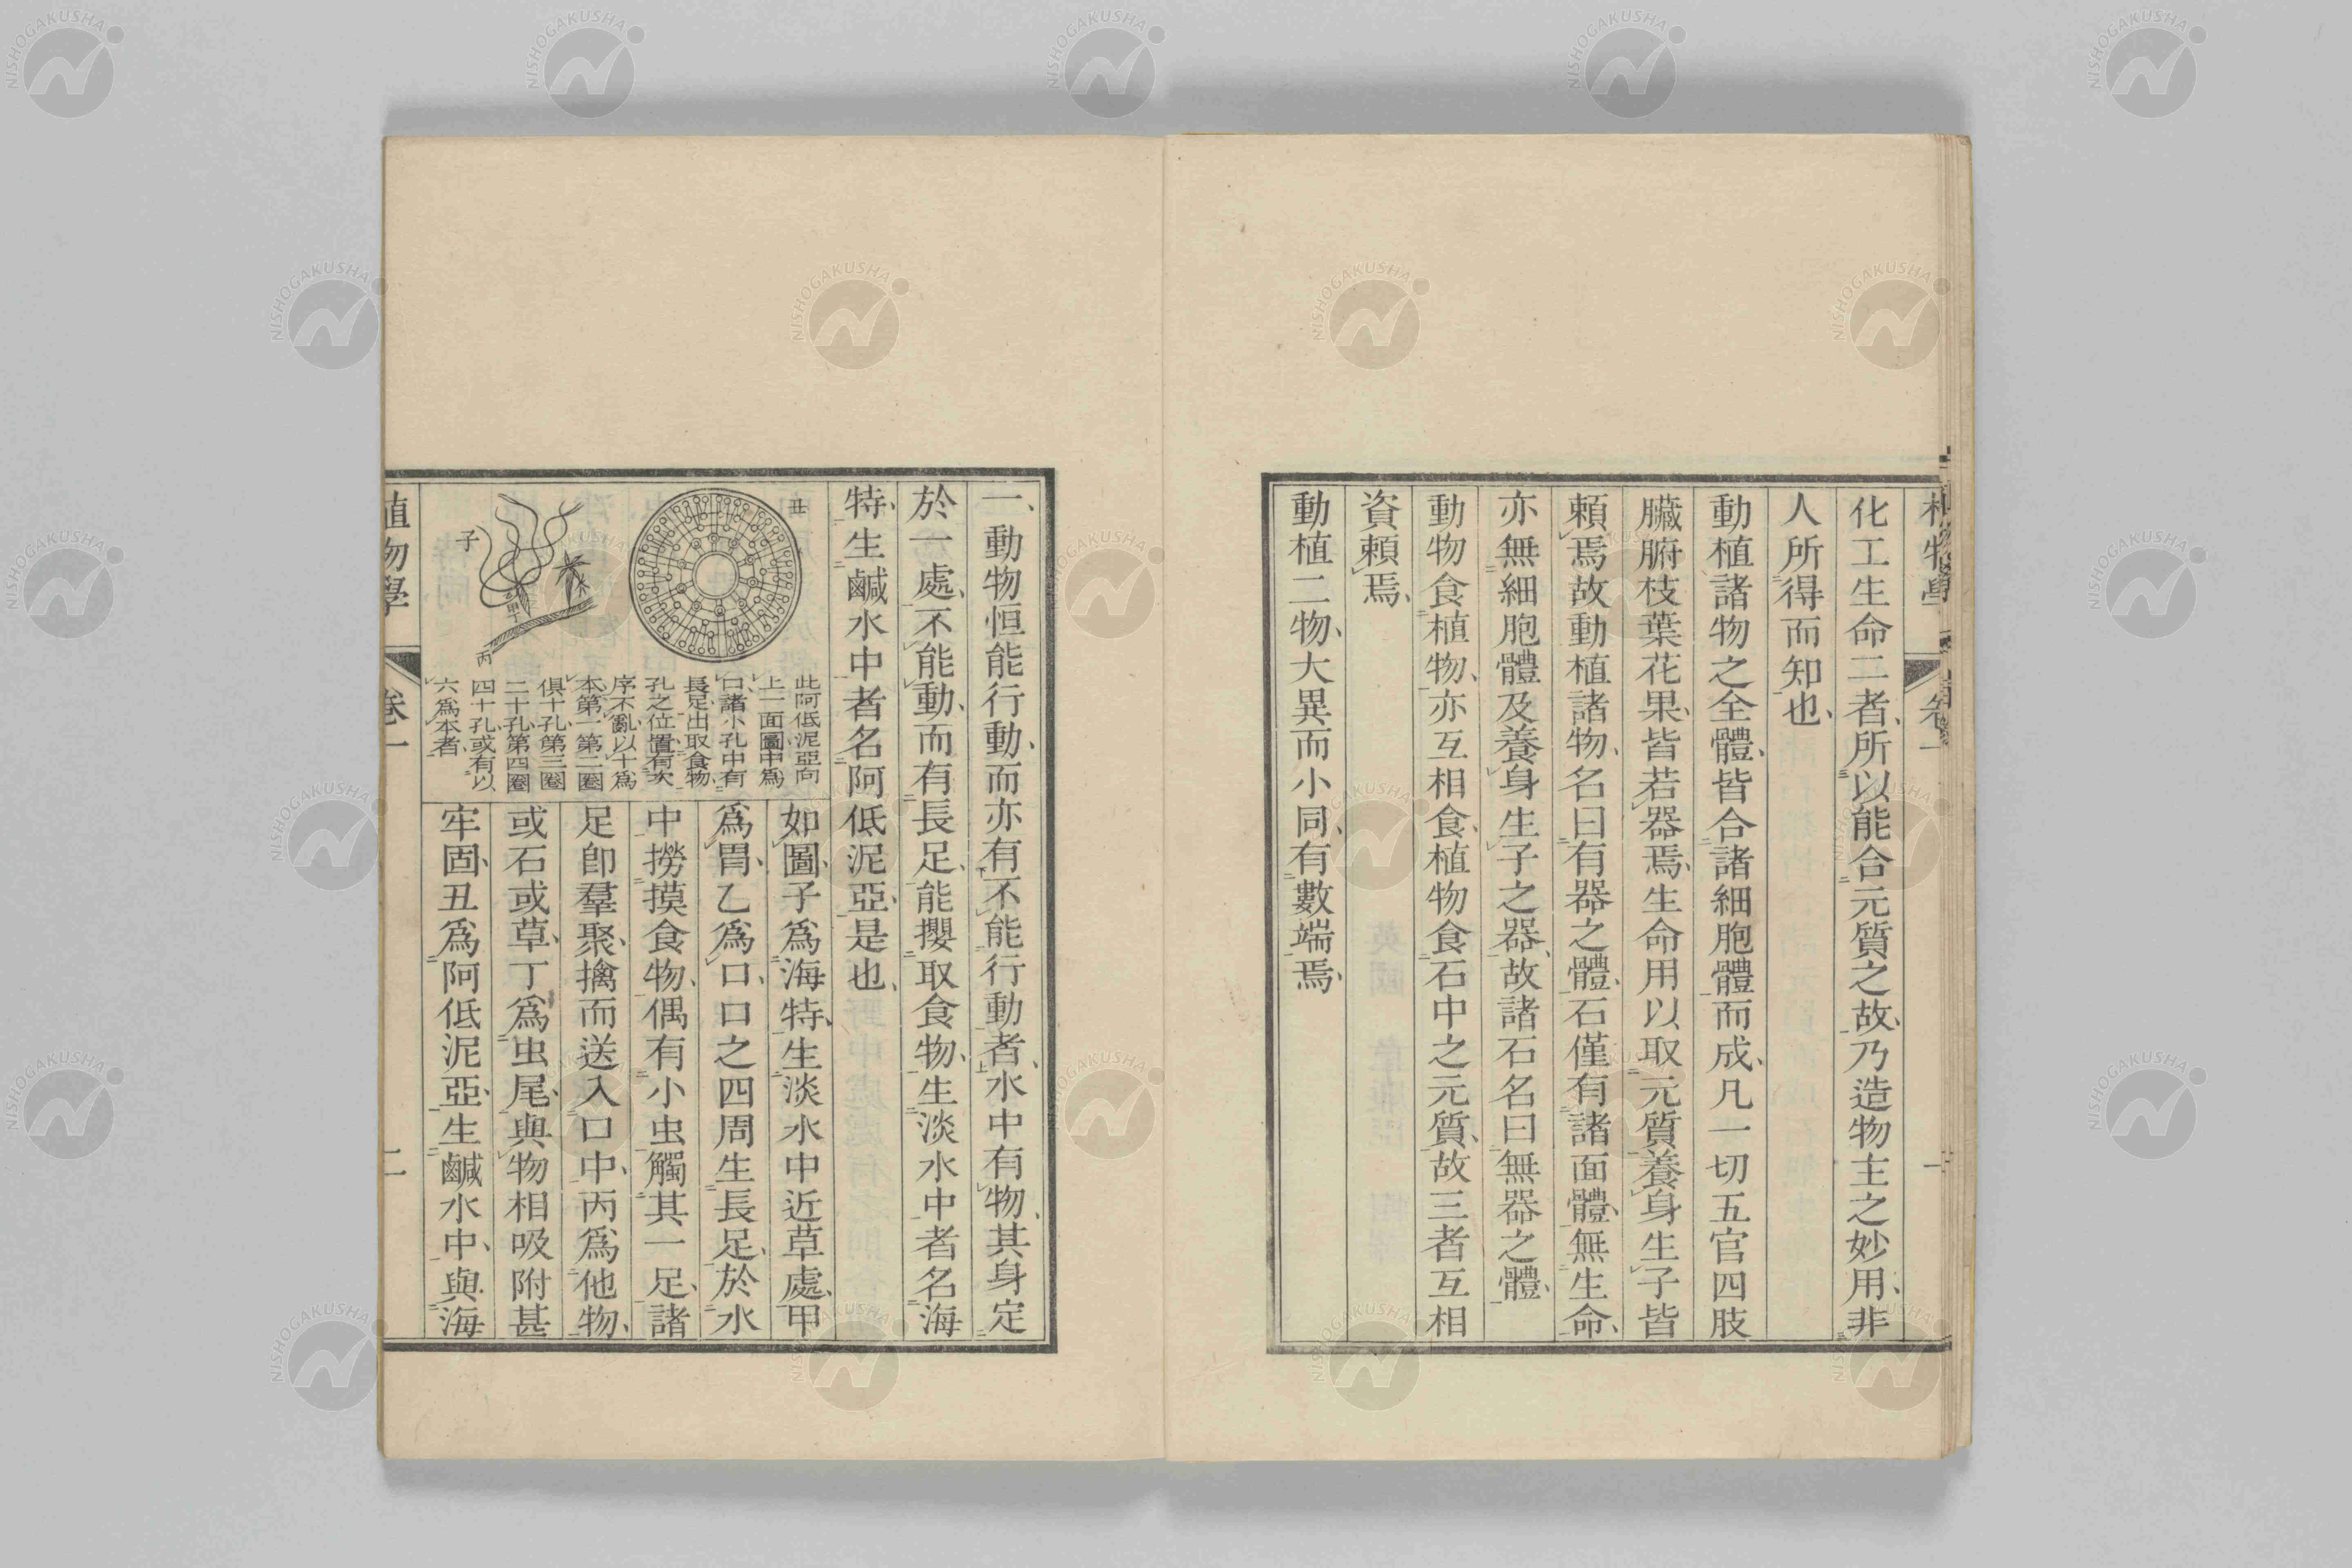 植物學 卷一 一
化工生命二者所以能合元質之故乃造物主之妙用非
人所得而知也
動植諸物之全體皆合諸細胞體而成凡一切五官四肢
臟腑枝葉花果皆若器焉生命用以取元質養身生子皆
賴焉故動植諸物名曰有器之體石僅有諸面體無生命
亦無細胞體及養身生子之器故諸石名曰無器之體
動物食植物亦互相食植物食石中之元質故三者互相
資賴焉
動植二物大異而小同有數端焉
一動物恒能行動而亦有不能行動者水中有物其身定
於一處不能動而有長足能攖取食物生淡水中者名海
特生鹹水中者名阿低泥亞是也
丑
子
甲
丙
此阿低泥亞向
上一面圖中為
口諸小孔中有
長足出取食物
孔之位置有次
序不亂以十為
本第一第二圈
俱十孔第三圈
二十孔第四圈
四十孔或有以
六為本者
如圖子爲海特生淡水中近草處甲
爲胃乙爲口口之四周生長足於水
中撈摸食物偶有小虫觸其一足諸
足卽羣聚擒而送入口中丙爲他物
或石或草丁爲虫尾與物相吸附甚
牢固丑爲阿低泥亞生鹹水中與海
植物學 卷一 二
NISHOGAKUSHA